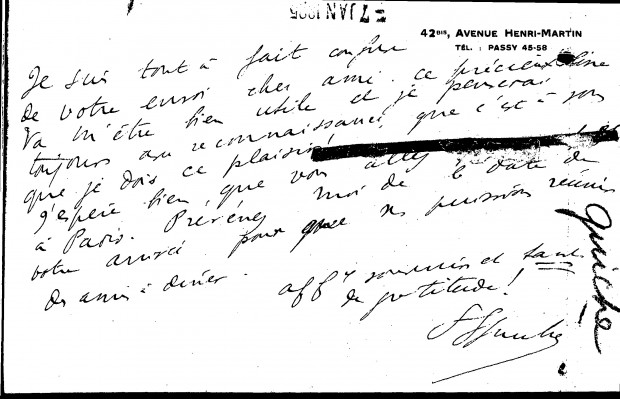 7 JAN 1995
42BIS, AVENUE HENRI-MARTIN
TÉL. : PASSY 45-58
Je suis tout à fait confus
de votre envoi cher ami. ce précieux
va m'être bien utile et je penserai
toujours avec reconnaissance que c'est à vous
que je dois ce plaisir
J'espère bien que vous allez
à Paris. Prévenez moi de la date de
votre arrivée pour que nous puissions réunir
des amis à diner.
aff souvenirs et tant
de gratitude!
Guiche